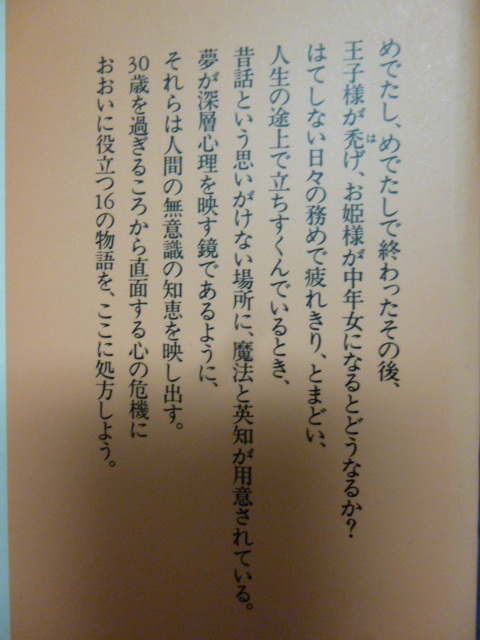 めでたし、めでたしで終わったその後、
王子様が禿げ、お姫様が中年女になるとどうなるか？
はてしない日々の務めで疲れきり、とまどい、
人生の途上で立ちすくんでいるとき、
昔話という思いがけない場所に、魔法と英知が用意されている。
夢が深層心理を映す鏡であるように、
それらは人間の無意識の知恵を映し出す。
30歳を過ぎるころから直面する心の危機に
おおいに役立つ16の物語を、ここに処方しよう。